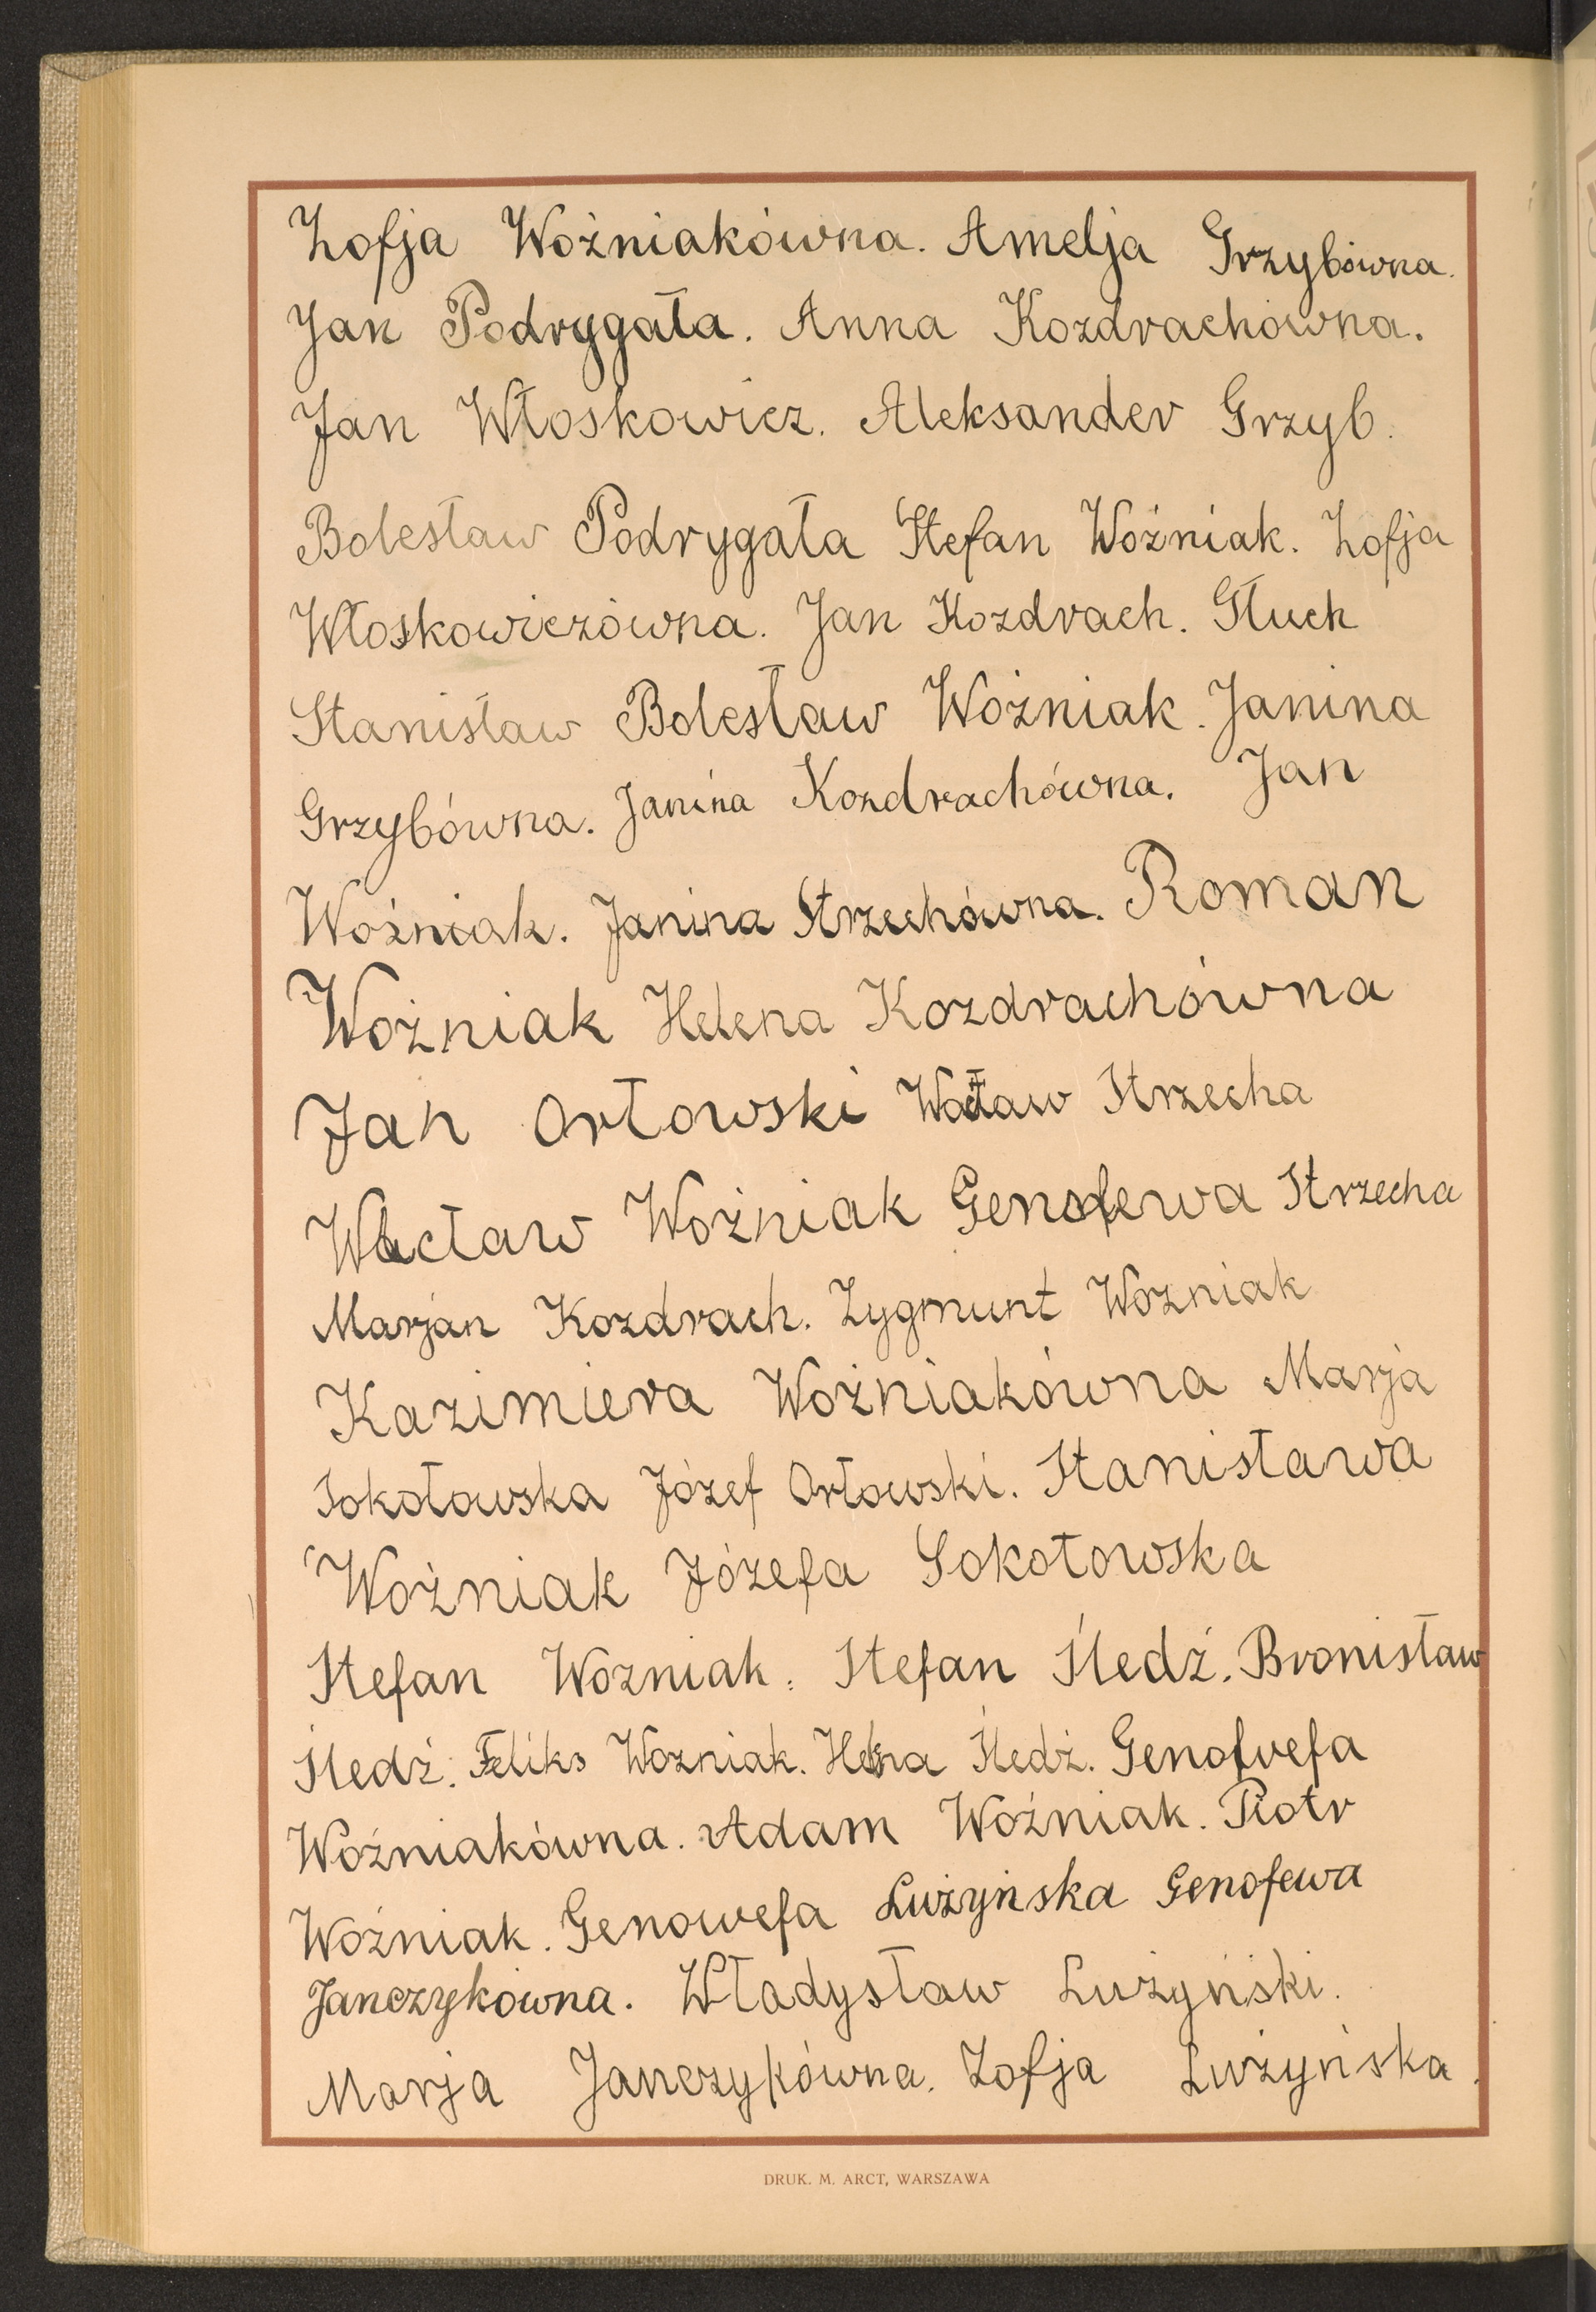 Zofja Woźniakówna. Amelja Grzybówna.
Jan Podrygała. Anna Kozdrachówna.
Jan Włoskowicz. Aleksander Grzyb.
Bolesław Podrygała Stefan Woźniak. Zofja
Włoskowiczówna. Jan Kozdrach. Głuch
Stanisław Bolesław Woźniak. Janina
Grzybówna. Janina Kozdrachówna. Jan
Woźniak. Janina Strzechówna. Roman
Woźniak Helena Kozdrachówna
Jan Orłowski Wacław Strzecha
Wacław Woźniak Genofewa Strzecha
Marjan Kozdrach. Zygmunt Woźniak
Kazimiera Woźniakówna Marja
Sokołowska Józef Orłowski. Stanisława
Woźniak Józefa Sokołowska
Stefan Wozniak. Stefan Śledź. Bronisław
Śledź. Feliks Wozniak. Helena Śledź. Genofvefa
Woźniakówna. Adam Woźniak. Piotr
Woźniak. Genowefa Lużyńska Genofewa
Janczykówna. Władysław Lużyński.
Marja Janczykówna. Zofja Lużyńska.
DRUK. M. ARCT, WARSZAWA